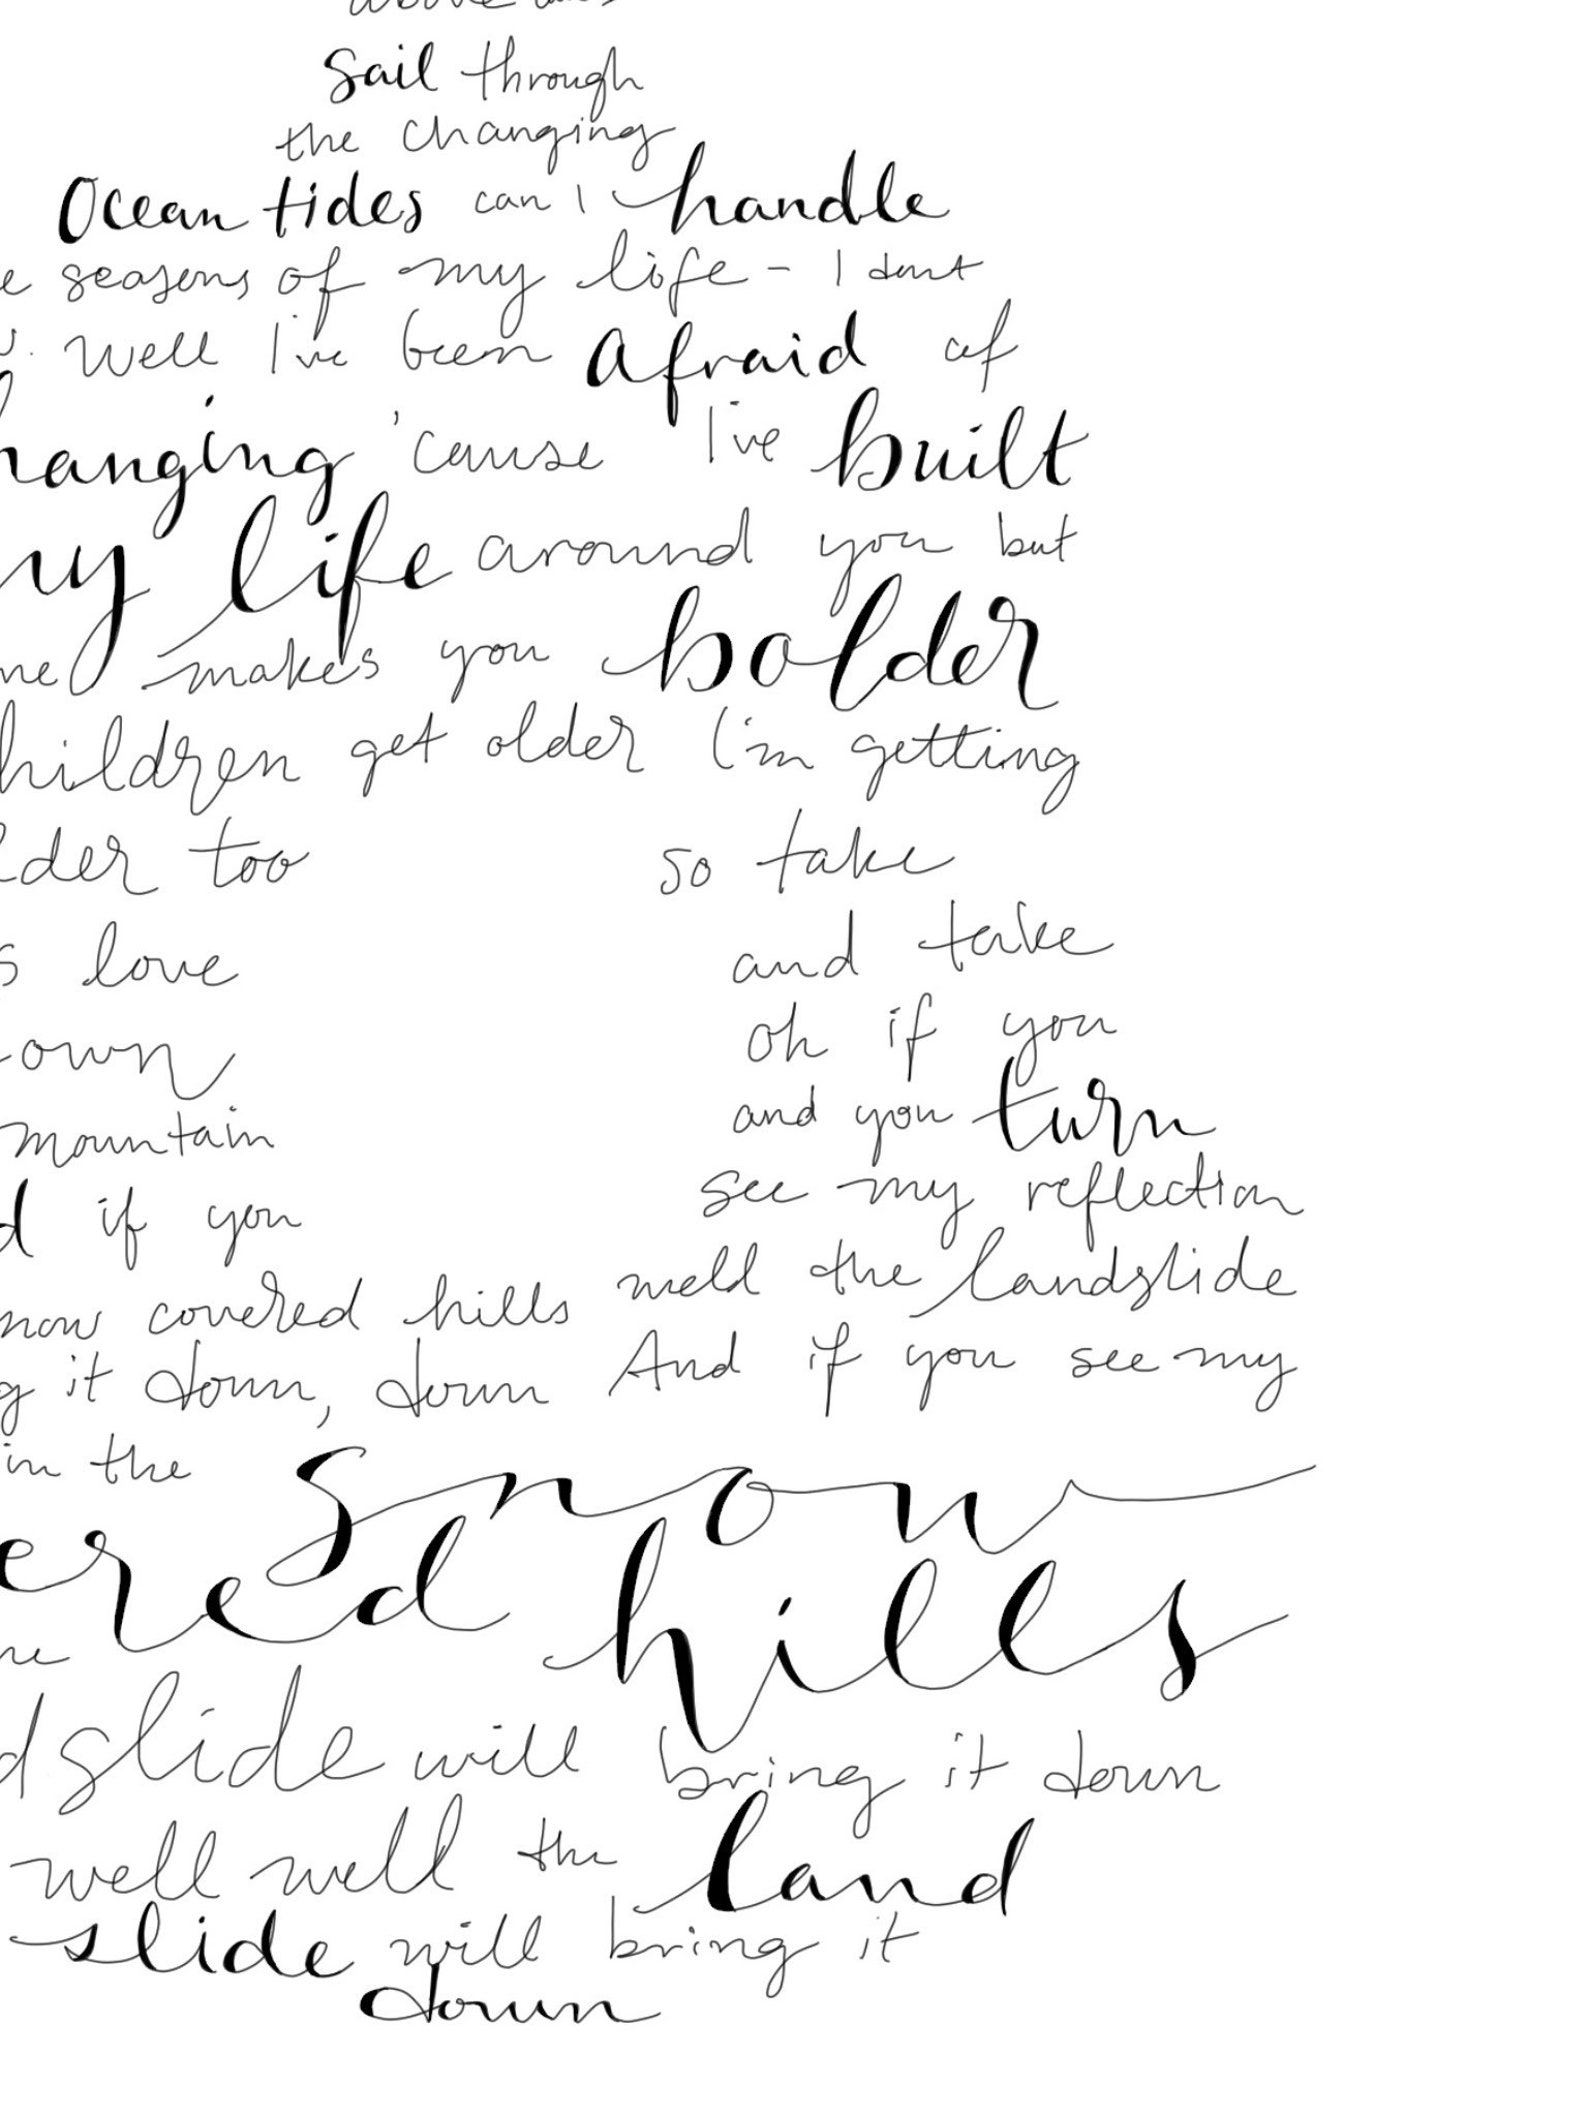 Sail through
the changing
Ocean tides can I handle
e seasons of my life - I dont
well I've been afraid of
hanging 'cause I've built
ny life around you but
me makes you bolder
hildren get older I'm getting
lder too so take
s love and take
own oh if you
mountain and you turn
d if you see my reflection
now covered hills well the landslide
g it down, down And if you see my
in the snow
ered hills
dslide will bring it down
well well the land
slide will bring it
down